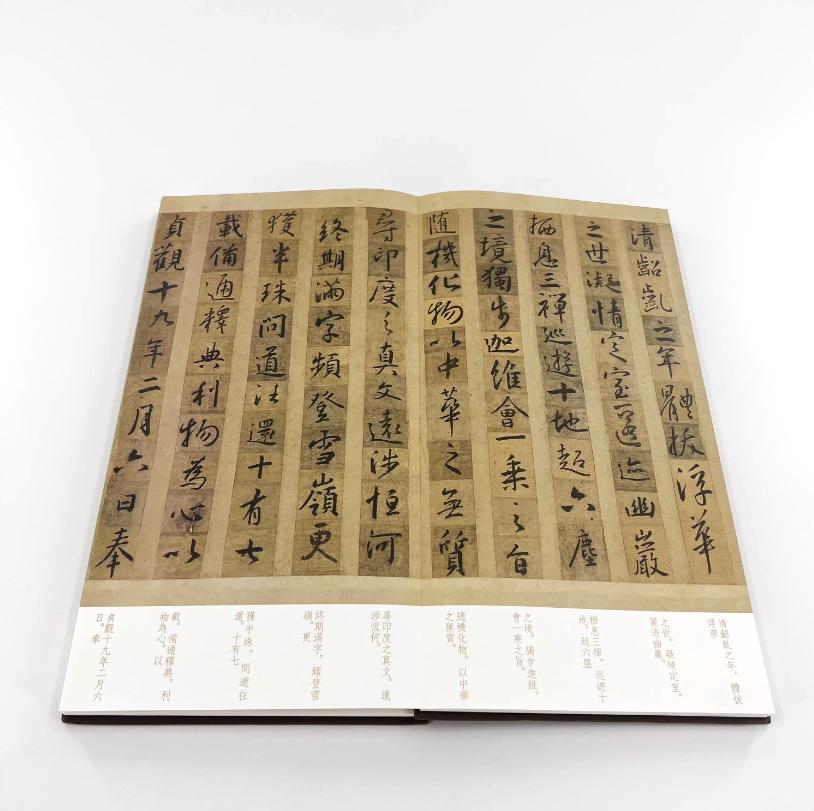 清齠齓之年體拔浮華
之世凝情定室匿迹幽巖
栖息三禪巡遊十地超六塵
之境獨步迦維會一乘之旨
隨機化物以中華之無質
尋印度之真文遠涉恒河
終期滿字頻登雪嶺更
獲半珠問道往還十有七
載備通釋典利物為心以
貞觀十九年二月六日奉
清齠齓之年。體拔
浮華
之世。凝情定室。
匿迹幽巖。
栖息三禪。巡遊十
地。超六塵
之境。獨步迦維。
會一乘之旨。
隨機化物。以中華
之無質。
尋印度之真文。遠
涉恆河。
終期滿字。頻登雪
嶺。更
獲半珠。問道往
還。十有七
載。備通釋典。利
物為心。以
貞觀十九年二月六
日。奉